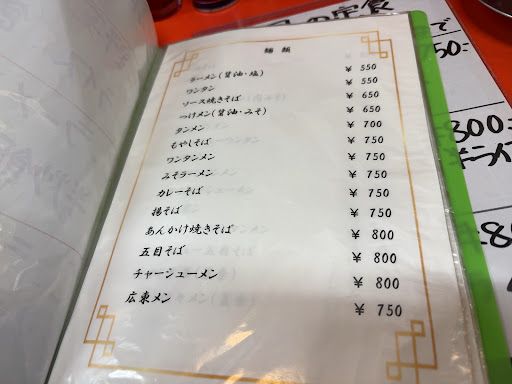 麺類
ラーメン(醤油・塩) ¥ 550
ワンタン ¥ 550
ソース焼きそば ¥ 650
つけメン(醤油・みそ) ¥ 650
タンメン ¥ 700
もやしそば ¥ 750
ワンタンメン ¥ 750
みそラーメン ¥ 750
カレーそば ¥ 750
揚そば ¥ 750
あんかけ焼きそば ¥ 800
五目そば ¥ 800
チャーシューメン ¥ 800
広東メン ¥ 750
の定食
で
50:
800: